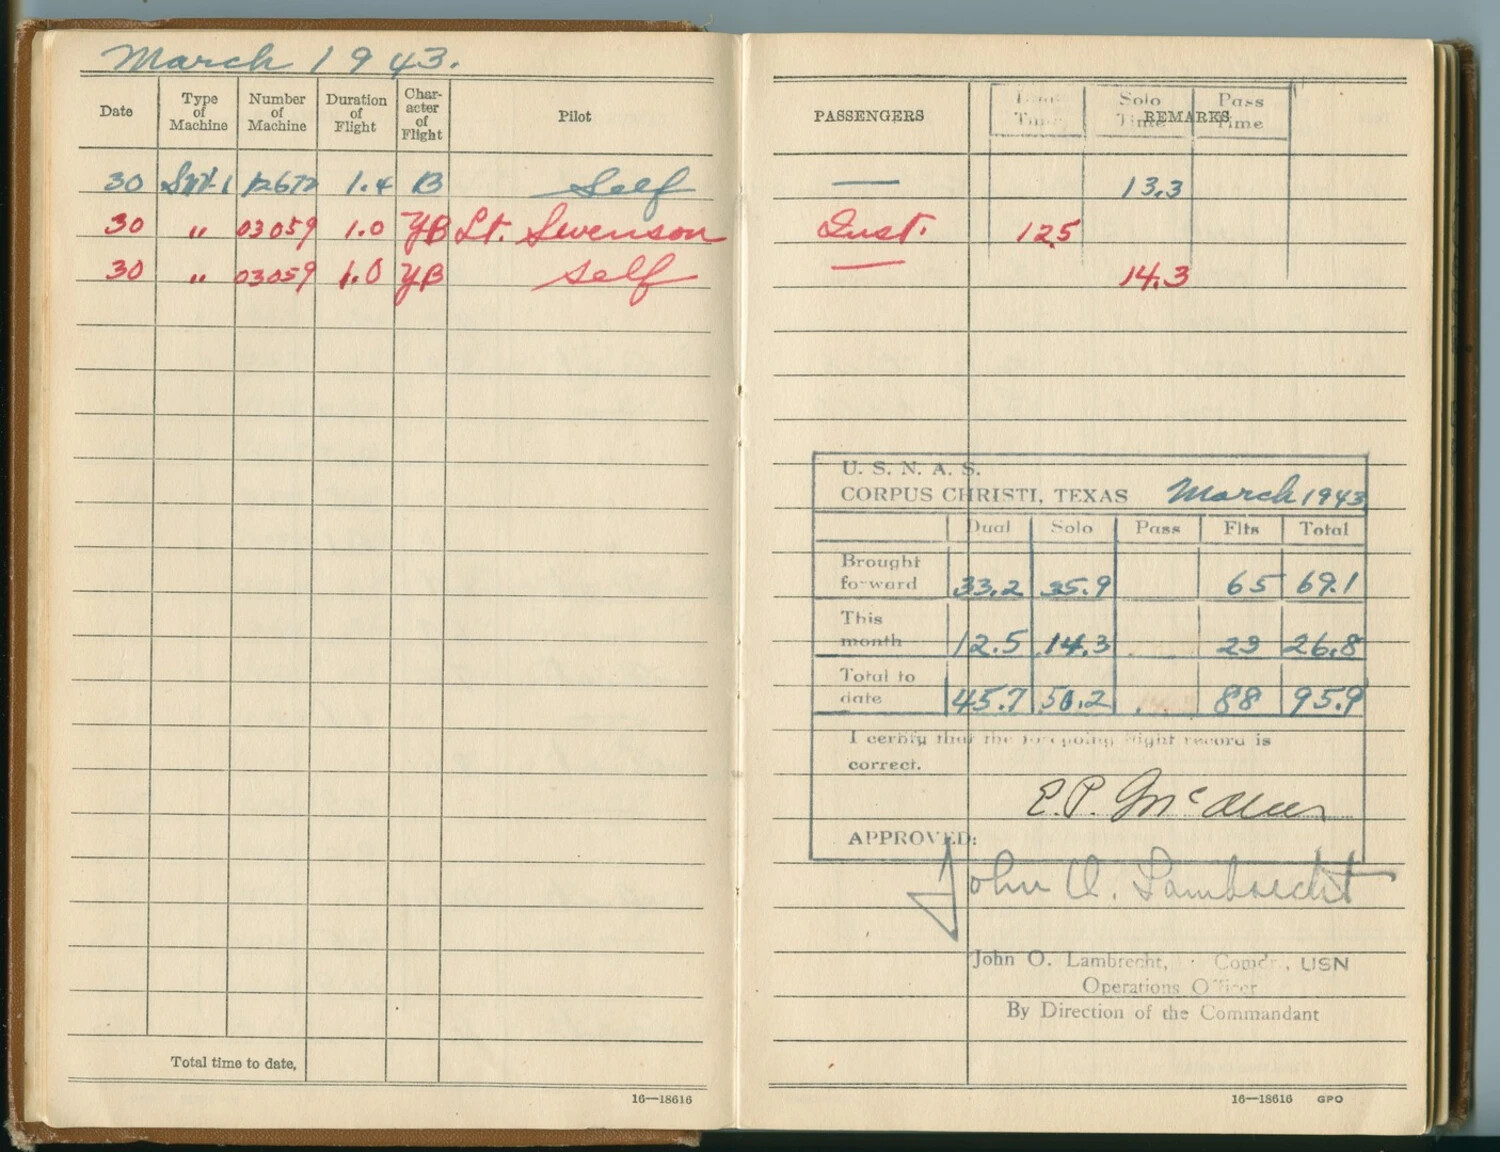 March 1943.
Date Type of Machine Number of Machine Duration of Flight Char-acter of Flight Pilot
30 SNV-1 12672 1.4 B Self
30 " 03059 1.0 YB Lt. Swenson
30 " 03059 1.0 YB Self
Total time to date,
16—18616
PASSENGERS REMARKS
Time Solo Time Pass Time
— 13.3
Inst. 12.5
— 14.3
U. S. N. A. S.
CORPUS CHRISTI, TEXAS March 1943
Dual Solo Pass Flts Total
Brought forward 33.2 35.9 65 69.1
This month 12.5 14.3 23 26.8
Total to date 45.7 50.2 88 95.9
I certify that the foregoing flight record is
correct.
E.P.
APPROVED:
John O. Lambrecht
John O. Lambrecht, Comdr., USN
Operations Officer
By Direction of the Commandant
16—18616 GPO